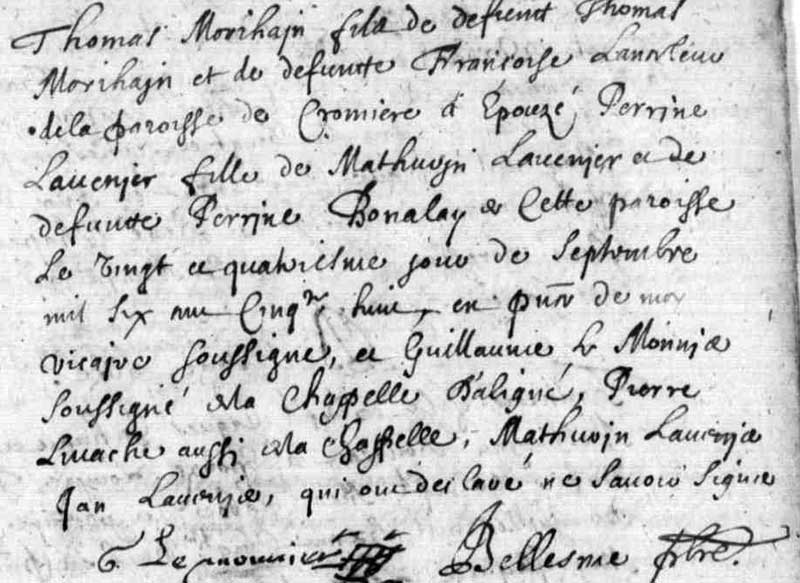 Thomas Morihajn fils de defunct Thomas
Morihajn et de defuncte Françoise
de la paroisse de Cromiere a Epouzé Perrine
Lavenjer fille de Mathurjn Lavenjer et de
defuncte Perrine Bonalay de Cette paroisse
Le vingt et quatriesme jour de Septembre
mil six cent Cinq.te huit, en pñce de moy
vicajre soussigné, et Guillaume le Monnje
soussigné de la Chappelle Daligné, Pierre
aussi de la Chappelle, Mathurjn Lavenje
Jan Lavenje, qui ont declaré ne savoir signer
G. Lemonnier Bellesme pbre.